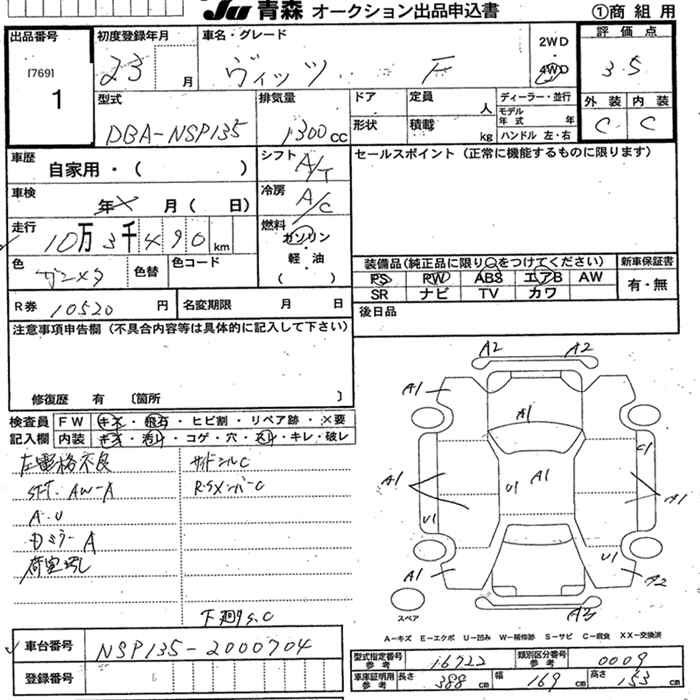 Ju 青森 オークション出品申込書 ①商組用
出品番号
[769]
1
初度登録年月
23 月
車名・グレード
ヴィッツ F
2WD
4WD
評価点
3.5
型式
DBA-NSP135
排気量
1300cc
ドア
形状
定員 人
積載 kg
ディーラー・並行
モデル年式 年式
ハンドル 左・右
外装 内装
C C
車歴
自家用・( )
シフト
A/T
セールスポイント(正常に機能するものに限ります)
車検
年 月( 日)
冷房
A/C
走行
10万3千490km
燃料
ガソリン
・
軽・油
( )
色
ガンメタ
色替
色コード
装備品(純正品に限り○をつけてください)
PS PW ABS エアB AW
SR ナビ TV カワ
新車保証書
有・無
R券 10520 円
名変期限 月 日
後日品
注意事項申告欄(不具合内容等は具体的に記入して下さい)
修復歴 有 〔箇所 〕
検査員記入欄
FW キズ・飛石・ヒビ割・リペア跡・×要
内装 キズ・汚れ・コゲ・穴・スレ・キレ・破レ
サイドシルC
SFT. AW-A
R.Sメンバー C
A.U
Dミラー A
下廻りS.C
A2 A2
A1 A1
A1
A1 U1 A1 C1 A1
U1 U1
A1 A2
A3
スペア
A-キズ E-エクボ U-凹み W-補修跡 S-サビ C-腐食 XX-交換済
車台番号 NSP135-2000704
登録番号
型式指定番号 参考 16722
類別区分番号 参考 0009
車庫証明用 参考 長さ 388 cm 幅 169 cm 高さ 153 cm